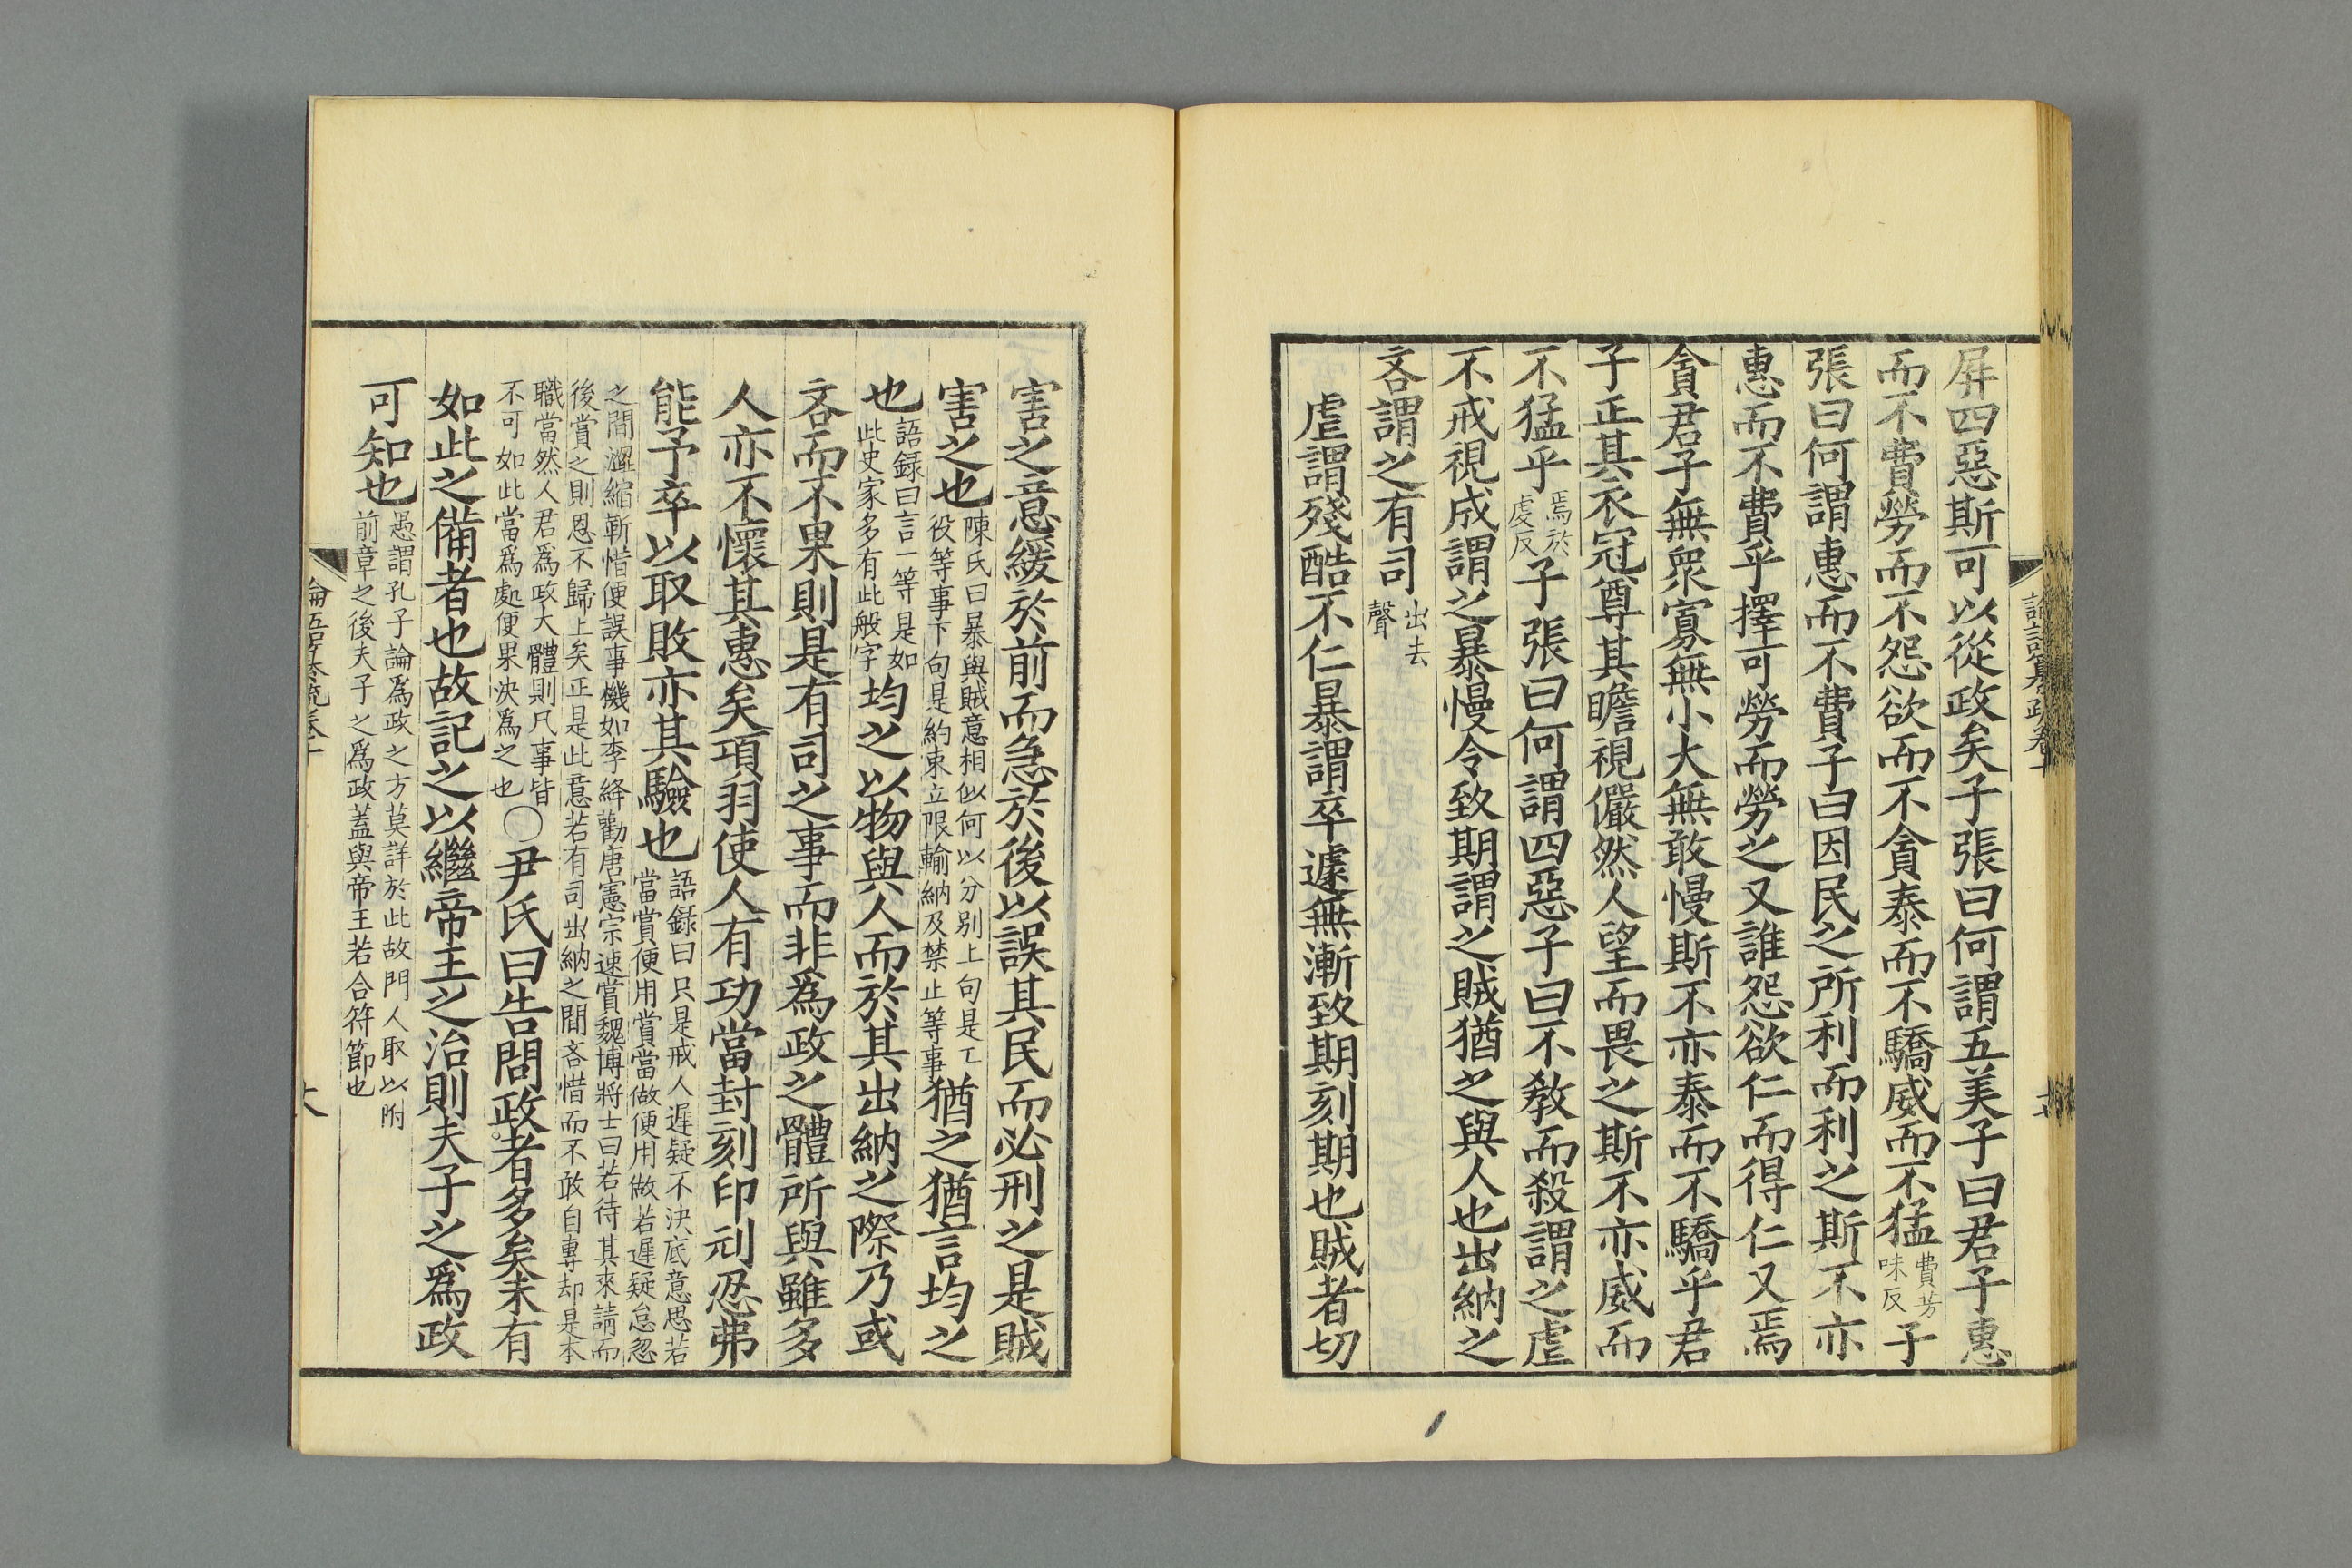 屏四惡斯可以從政矣子張曰何謂五美子曰君子惠
而不費勞而不怨欲而不貪泰而不驕威而不猛費芳味反子
張曰何謂惠而不費子曰因民之所利而利之斯不亦
惠而不費乎擇可勞而勞之又誰怨欲仁而得仁又焉
貪君子無衆寡無小大無敢慢斯不亦泰而不驕乎君
子正其衣冠尊其瞻視儼然人望而畏之斯不亦威而
不猛乎焉於虔反子張曰何謂四惡子曰不敎而殺謂之虐
不戒視成謂之暴慢令致期謂之賊猶之與人也出納之
吝謂之有司出去聲
虐謂殘酷不仁暴謂卒遽無漸致期刻期也賊者切
害之意緩於前而急於後以誤其民而必刑之是賊
害之也陳氏曰暴與賊意相似何以分別上句是工役等事下句是約束立限輸納及禁止等事猶之猶言均之
也語録曰言一等是如此史家多有此般字均之以物與人而於其出納之際乃或
吝而不果則是有司之事而非爲政之體所與雖多
人亦不懷其惠矣項羽使人有功當封刻印刓忍弗
能予卒以取敗亦其驗也語録曰只是戒人遲疑不決底意思若當賞便用賞當做便用做若遲疑怠忽
之間澀縮靳惜便誤事機如李絳勸唐憲宗速賞魏博將士曰若待其來請而後賞之則恩不歸上矣正是此意若有司出納之間吝惜而不敢自專却是本
職當然人君爲政大體則凡事皆不可如此當爲處便果決爲之也〇尹氏曰告問政者多矣未有
如此之備者也故記之以繼帝王之治則夫子之爲政
可知也愚謂孔子論爲政之方莫詳於此故門人取以附前章之後夫子之爲政蓋與帝王若合符節也